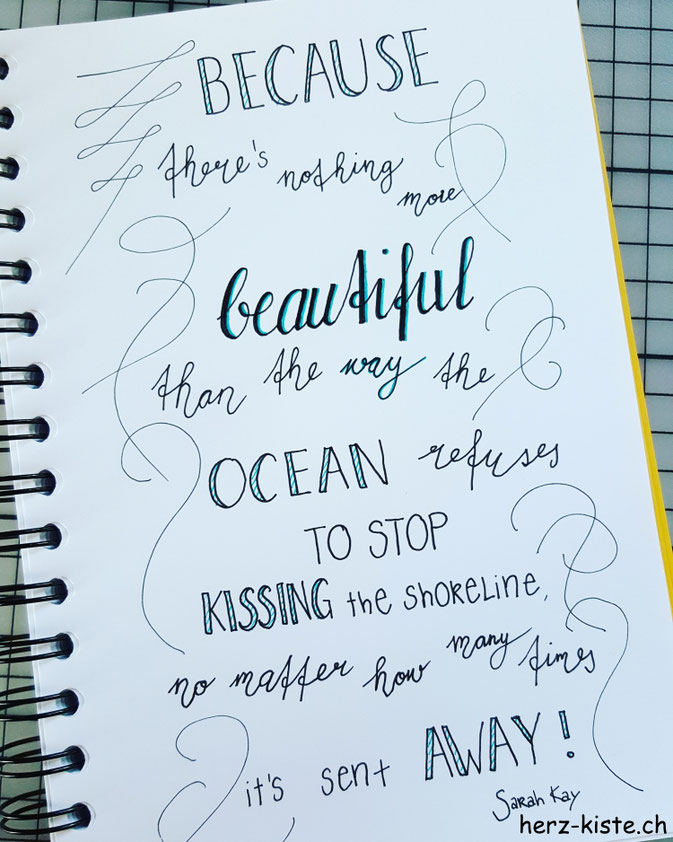 BECAUSE
there's nothing more
beautiful
than the way the
OCEAN refuses
TO STOP
KISSING the SHORELINE,
no matter how many times
it's sent AWAY!
SARAH KAY
herz-kiste.ch